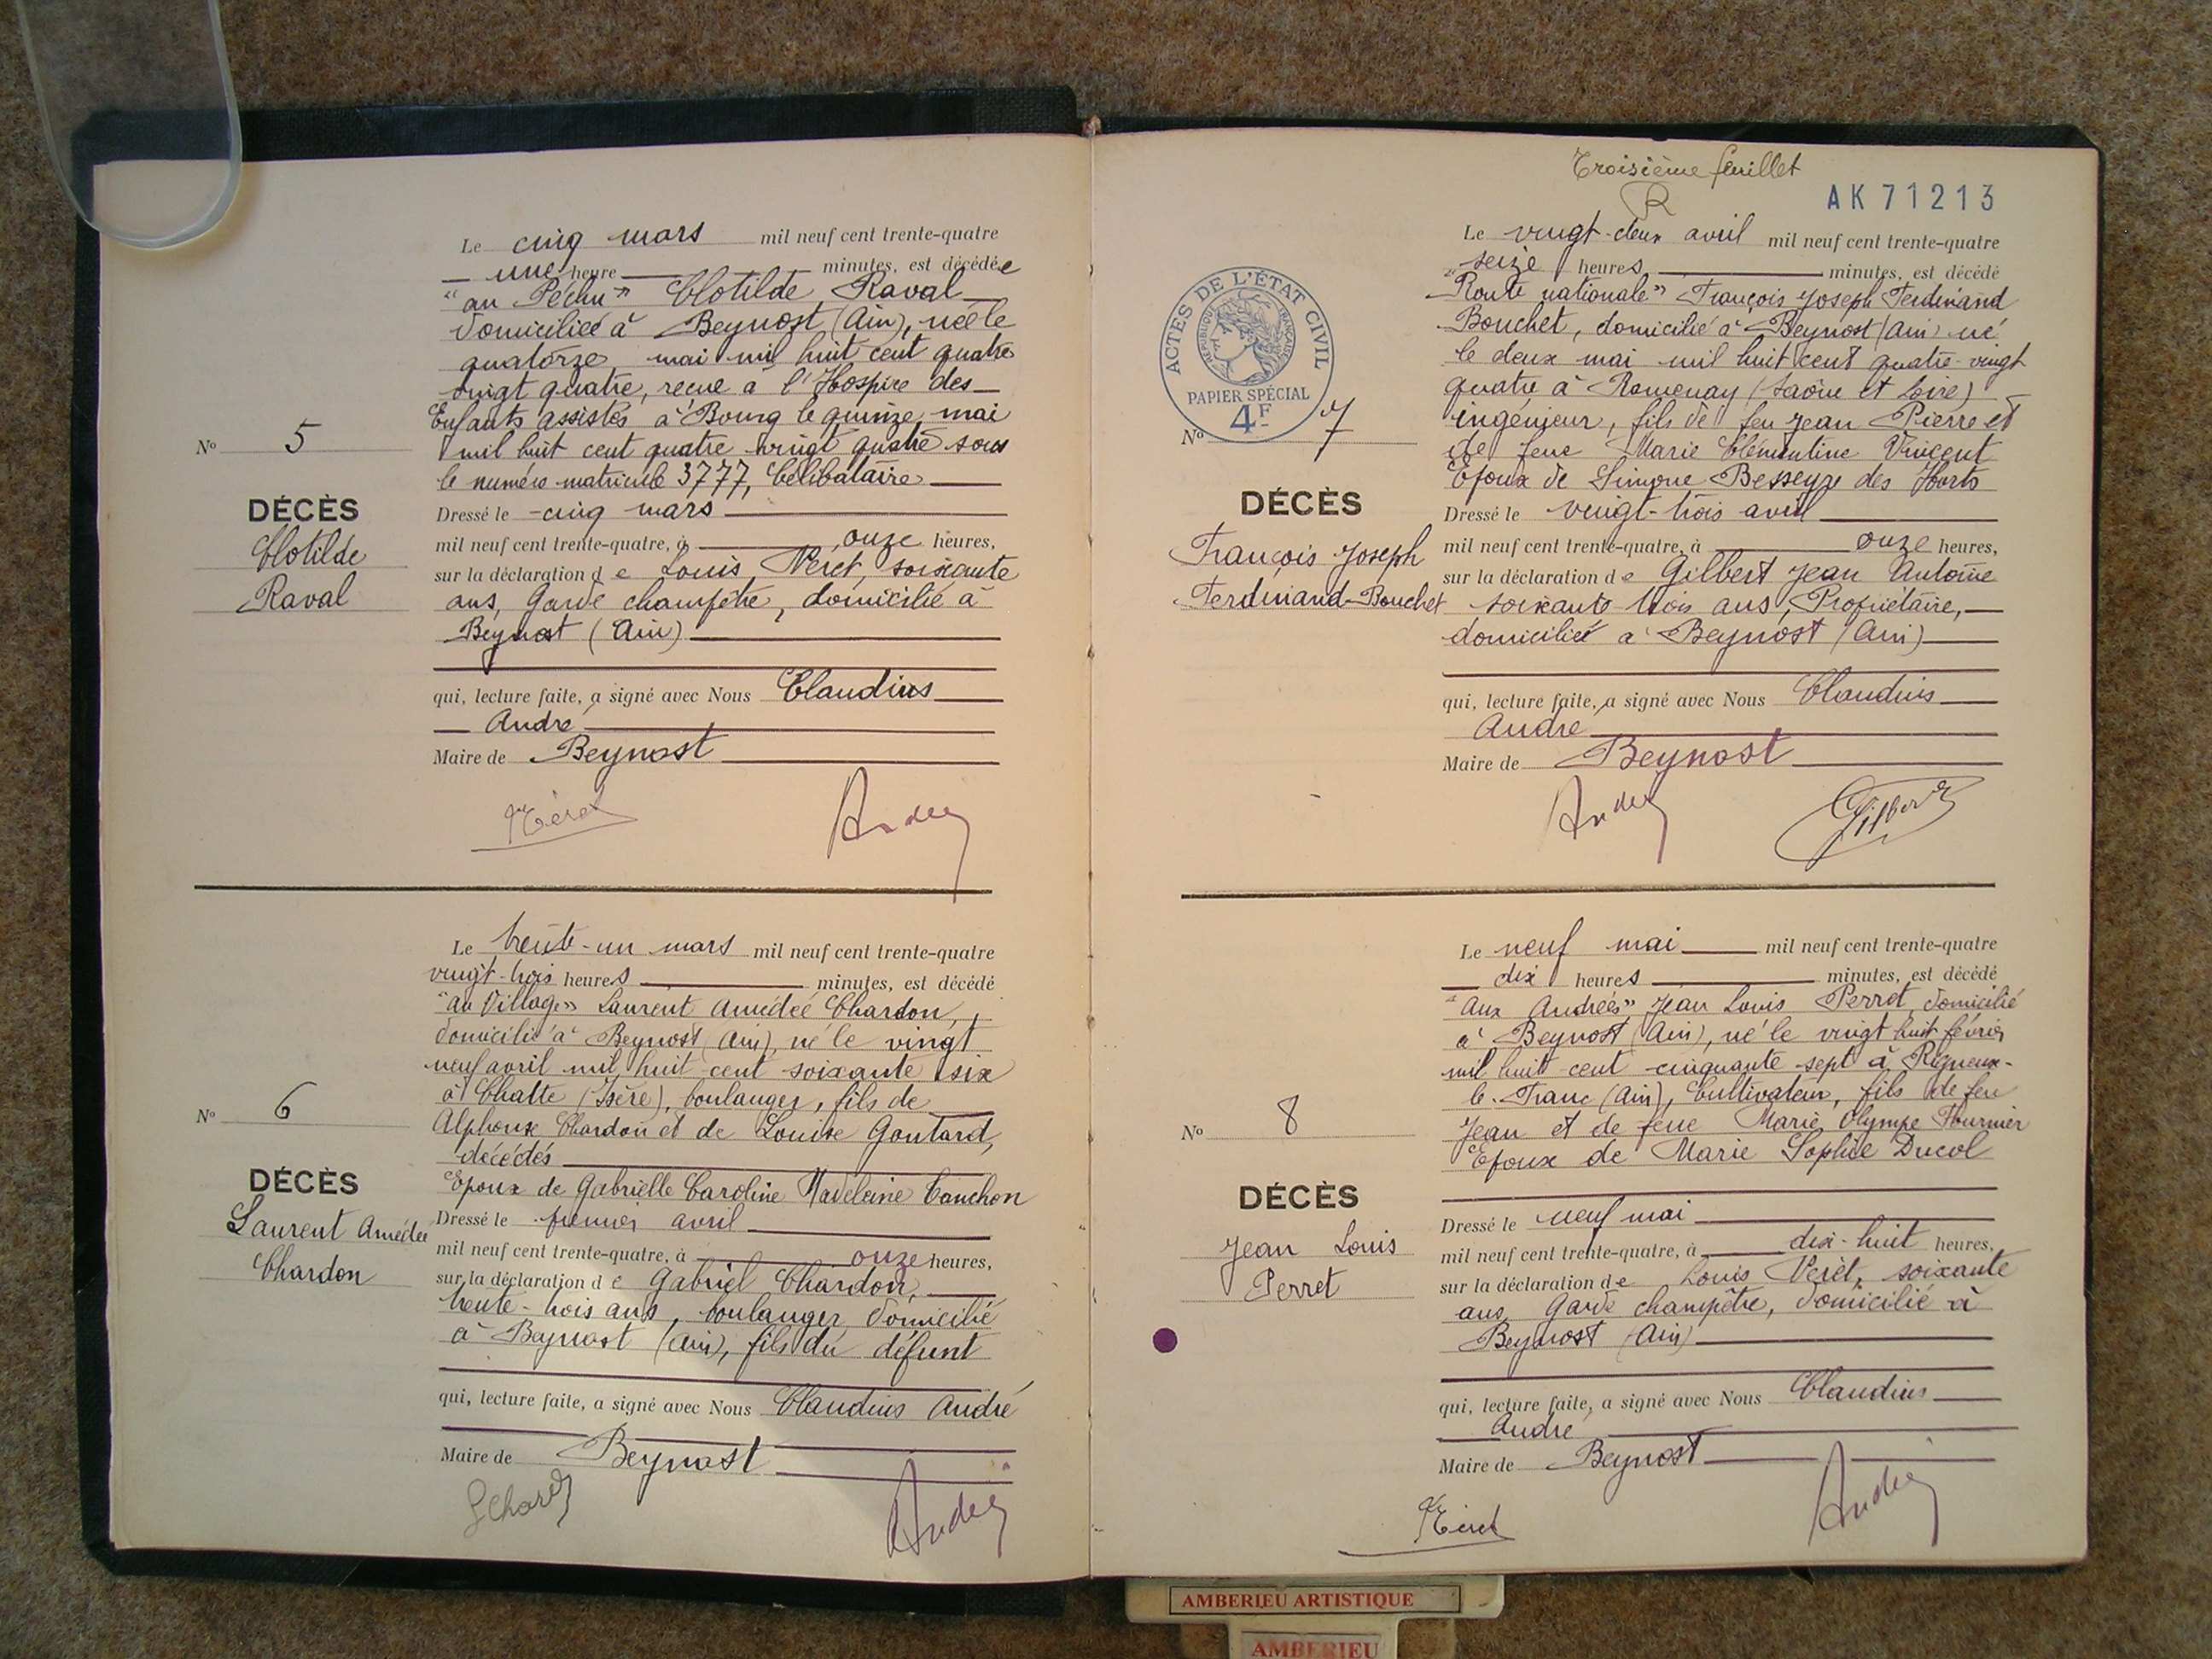 Le cinq mars mil neuf cent trente-quatre
une heure minutes, est décédée
"au Péchu" Clotilde Raval
domiciliée à Beynost (Ain), née le
quatorze mai mil huit cent quatre
vingt quatre, reçue à l'Hospice des
Enfants assistés à Bourg le quinze mai
mil huit cent quatre vingt quatre sous
le numéro matricule 3777, Célibataire
Nº 5
DÉCÈS
Clotilde
Raval
Dressé le cinq mars
mil neuf cent trente-quatre, à onze heures,
sur la déclaration de Louis Veret, soixante
ans, Garde champêtre, domicilié à
Beynost (Ain)
qui, lecture faite, a signé avec Nous Claudius
André
Maire de Beynost
Veret André
Le trente-un mars mil neuf cent trente-quatre
vingt-trois heures minutes, est décédé
"au Village" Laurent Amédée Chardon,
domicilié à Beynost (Ain), né le vingt
neuf avril mil huit cent soixante six
à Chatte (Isère), boulanger, fils de
Alphonse Chardon et de Louise Goutard,
décédés
Epoux de Gabrielle Caroline Madeleine Cauchon
Nº 6
DÉCÈS
Laurent Amédée
Chardon
Dressé le premier avril
mil neuf cent trente-quatre, à onze heures,
sur la déclaration de Gabriel Chardon,
trente-trois ans, boulanger domicilié
à Beynost (Ain), fils du défunt
qui, lecture faite, a signé avec Nous Claudius André
Maire de Beynost
GChardon André
Troisième feuillet
AK 71213
Le vingt-deux avril mil neuf cent trente-quatre
seize heures minutes, est décédé
"Route nationale" François Joseph Ferdinand
Bouchet, domicilié à Beynost (Ain) né
le deux mai mil huit cent quatre-vingt
quatre à Romenay (Saône et Loire)
ingénieur, fils de feu Jean Pierre et
de feue Marie Clémentine Vincent
Epoux de Simone Besseyre des Horts
ACTES DE L'ÉTAT CIVIL
RÉPUBLIQUE FRANÇAISE
PAPIER SPÉCIAL
4F
Nº 7
DÉCÈS
François Joseph
Ferdinand Bouchet
Dressé le vingt-trois avril
mil neuf cent trente-quatre, à onze heures,
sur la déclaration de Gilbert Jean Antoine
soixante-trois ans, Propriétaire,
domicilié à Beynost (Ain)
qui, lecture faite, a signé avec Nous Claudius
André
Maire de Beynost
André Gilbert
Le neuf mai mil neuf cent trente-quatre
dix heures minutes, est décédé
"Aux Andrées" Jean Louis Perret domicilié
à Beynost (Ain), né le vingt huit février
mil huit cent cinquante sept à Rigneux-
le-Franc (Ain), Cultivateur, fils de feu
Jean et de feue Marie Olympe Fournier
Epoux de Marie Sophie Ducol
Nº 8
DÉCÈS
Jean Louis
Perret
Dressé le neuf mai
mil neuf cent trente-quatre, à dix-huit heures,
sur la déclaration de Louis Veret, soixante
ans, Garde champêtre, domicilié à
Beynost (Ain)
qui, lecture faite, a signé avec Nous Claudius
André
Maire de Beynost
Veret André
AMBERIEU ARTISTIQUE
AMBERIEU